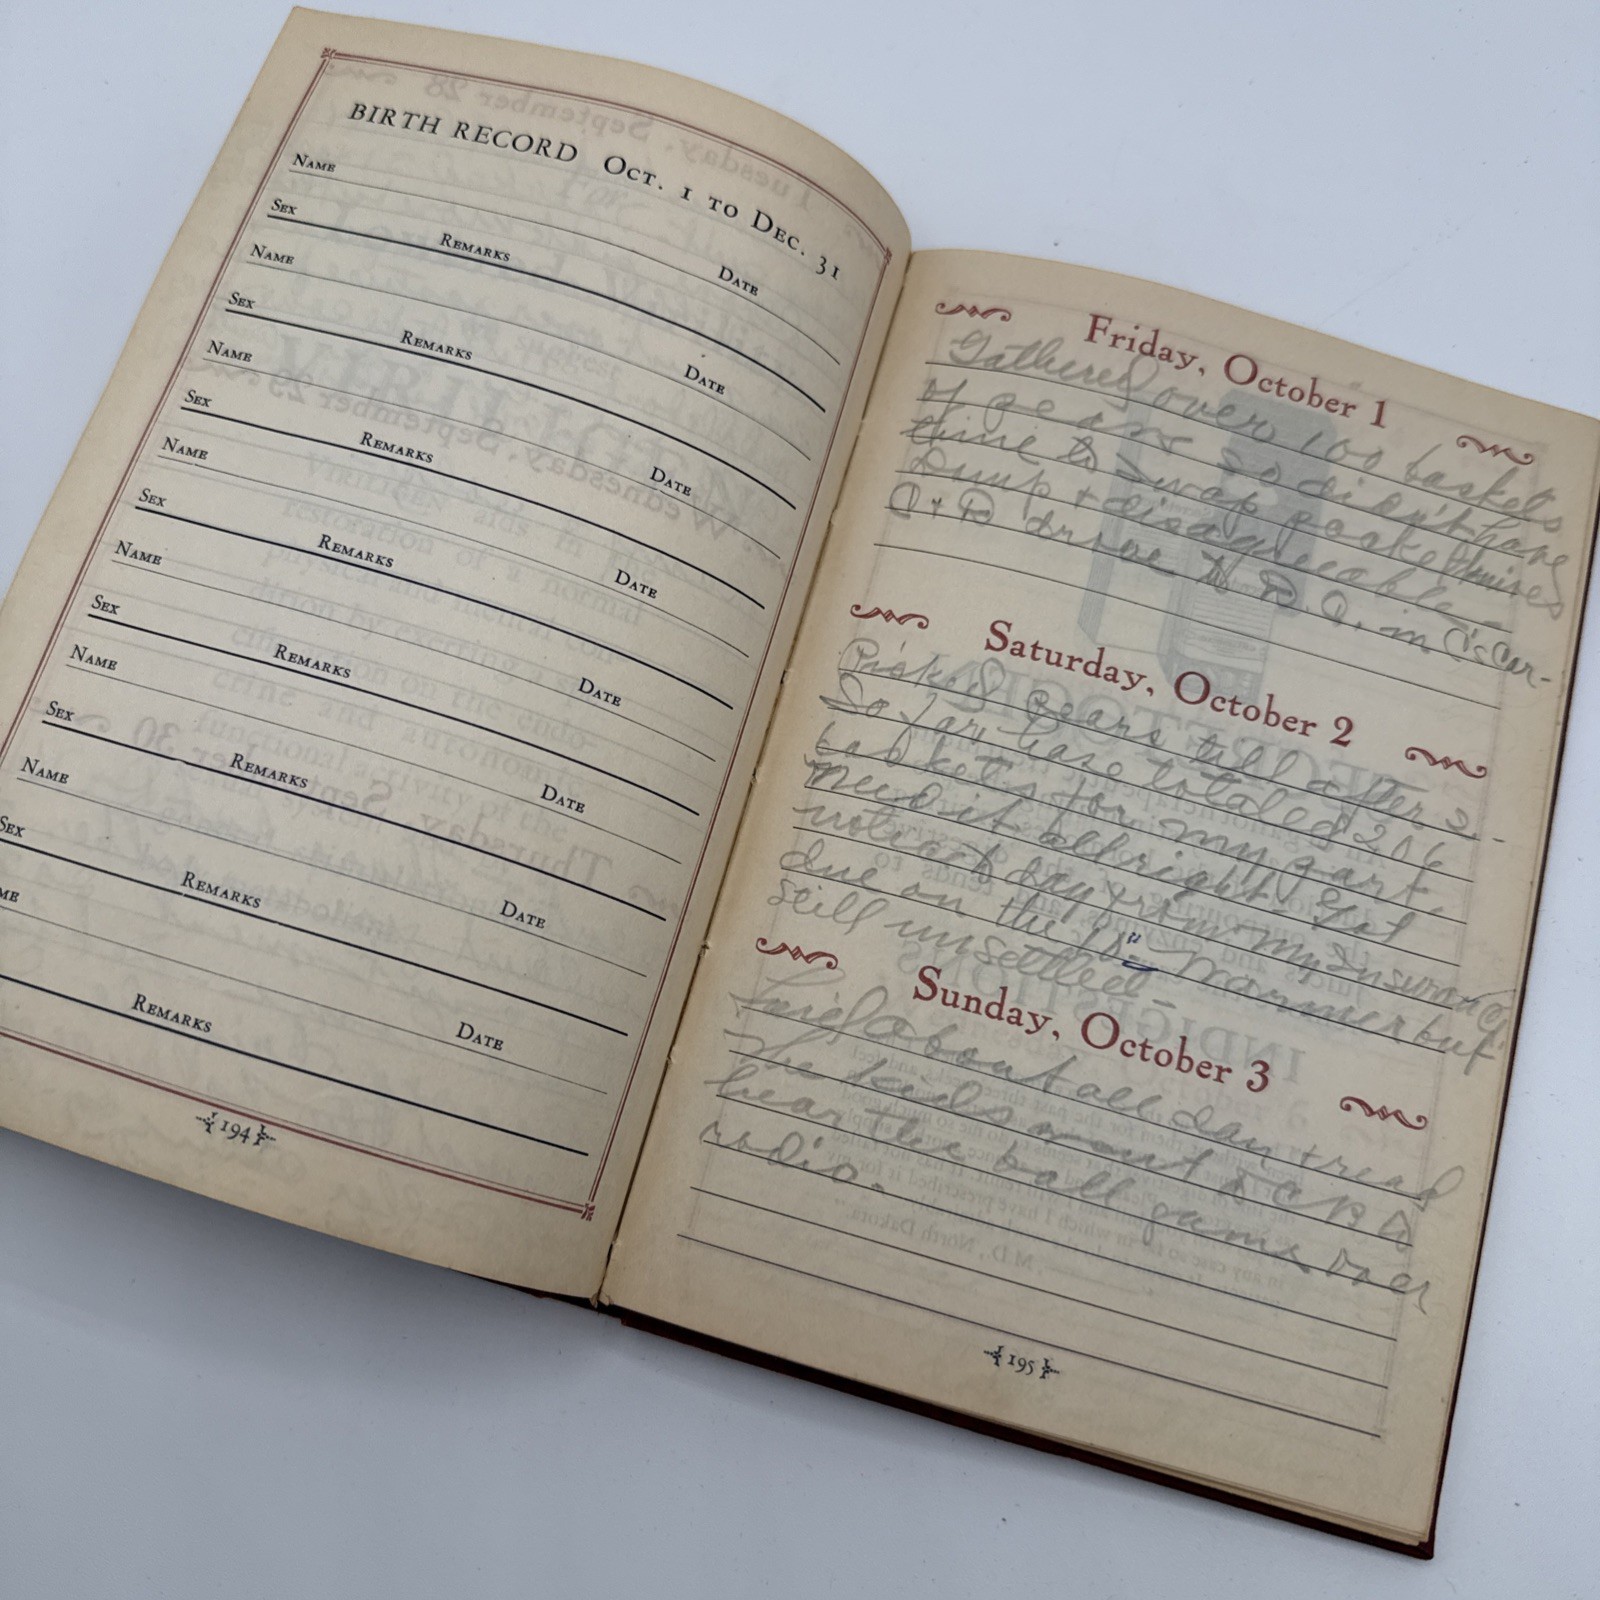 BIRTH RECORD Oct. 1 to Dec. 31
Name
Sex Remarks Date
Name
Sex Remarks Date
Name
Sex Remarks Date
Name
Sex Remarks Date
Name
Sex Remarks Date
Name
Sex Remarks Date
Name
Sex Remarks Date
Remarks Date
194
Friday, October 1
Gathered over 100 baskets
of pears so didn't have
time to swap
Damp + disagreeable -
drive to in C's car-
Saturday, October 2
Picked Pears till after 2. -
So far have totaled 206
baskets for my part.
Need it allright - Got
notice yesterday on my Insurance
due on the 18" Warmer but
still unsettled -
Sunday, October 3
Laid about all day + read
The kids went to
hear the ball game over
radio -
195